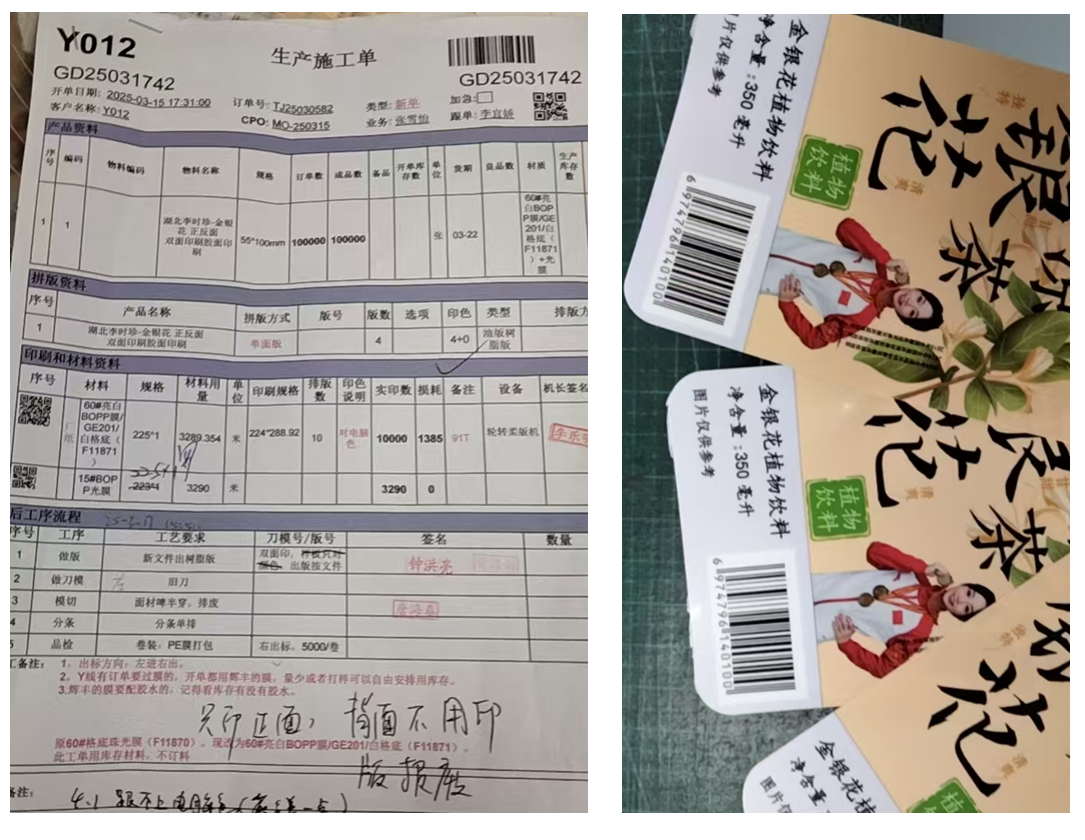 Y012
生产施工单
GD25031742
GD25031742
开单日期: 2025-03-15 17:31:00
订单号: TJ25030582
类型: 新单
加急:
客户名称: Y012
CPO: MO-250315
业务: 张雪怡
跟单: 李宜娇
产品资料
序号 编码 物料编码 物料名称 规格 订单数 成品数 备品 开单库存数 单位 货期 良品数 材质 生产库存数
1 1 湖北李时珍-金银花 正反面 双面印刷胶面印刷 55*100mm 100000 100000 张 03-22 60#亮白BOPP膜/GE201/白格底(F11871)+光膜
拼版资料
序号 产品名称 拼版方式 版号 版数 选项 印色 类型 排版方
1 湖北李时珍-金银花 正反面 双面印刷胶面印刷 单面版 4 4+0 油版树脂版
印刷和材料资料
序号 材料 规格 材料用量 单位 印刷规格 排版数 印色说明 实印数 损耗 备注 设备 机长签名
60#亮白BOPP膜/GE201/白格底(F11871) 225*1 3289.354 米 224*288.92 10 对电脑色 10000 1385 91T 轮转柔版机
15#BOPP光膜 223*1 3290 米 3290 0
后工序流程
序号 工序 工艺要求 刀模号/版号 签名 数量
1 做版 新文件出树脂版 双面印, 出版按文件 钟洪亮
2 做刀模 旧刀
3 模切 面材啤半穿，排废
4 分条 分条单排
5 品检 卷装：PE膜打包 右出标，5000/卷
工备注: 1，出标方向：左进右出。
2，Y线有订单要过膜的，开单都用辉丰的膜，量少或者打样可以自由安排用库存。
3.辉丰的膜要配胶水的，记得看库存有没有胶水。
只印正面，背面不用印
原60#格底珠光膜（F11870），现改为60#亮白BOPP膜/GE201/白格底（F11871）。
此工单用库存材料，不订料
版报废
备注:
金银花植物饮料
净含量:350毫升
图片仅供参考
植物饮料
银花茶
清爽
6974796140100
金银花植物饮料
净含量:350毫升
图片仅供参考
植物饮料
花茶
清爽
6974796140100
金银花植
净含量:
图片仅供
植物
花
清爽